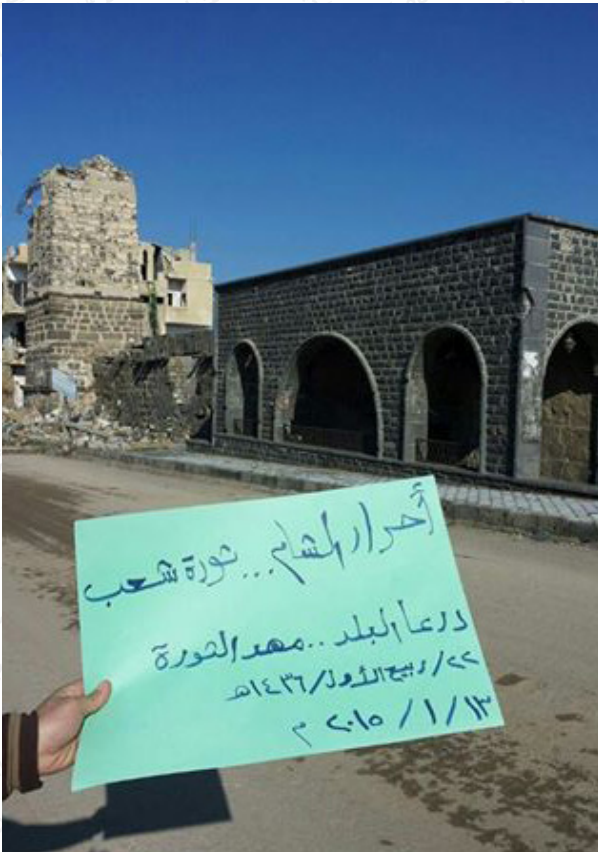 أحرار الشام... ثورة شعب
درعا البلد.. مهد الثورة
٢٢/ربيع الأول/١٤٣٦هـ
١٣/١/٢٠١٥ م